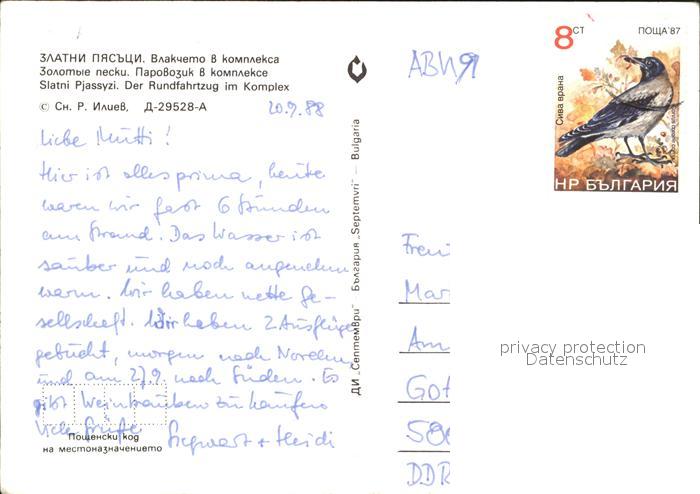 ЗЛАТНИ ПЯСЪЦИ. Влакчето в комплекса
Золотые пески. Паровозик в комплексе
Slatni Pjassyzi. Der Rundfahrtzug im Komplex
© Сн. Р. Илиев, Д-29528-А
20.9.88
Liebe Mutti!
Hier ist alles prima, heute
waren wir fast 6 Stunden
am Strand. Das Wasser ist
sauber und noch angenehm
warm. Wir haben nette Ge-
sellschaft. Wir haben 2 Ausflüge
gebucht, morgen nach Norden
und am 27.9. nach Süden. Es
gibt Weintrauben zu kaufen
Viele Grüße Siegwart + Heidi
Пощенски код
на местоназначението
ДИ „Септември" България „Septemvri" — Bulgaria
8 СТ
ПОЩА'87
Сива врана
НР БЪЛГАРИЯ
Mar
Am
Got
DDR
privacy protection
Datenschutz